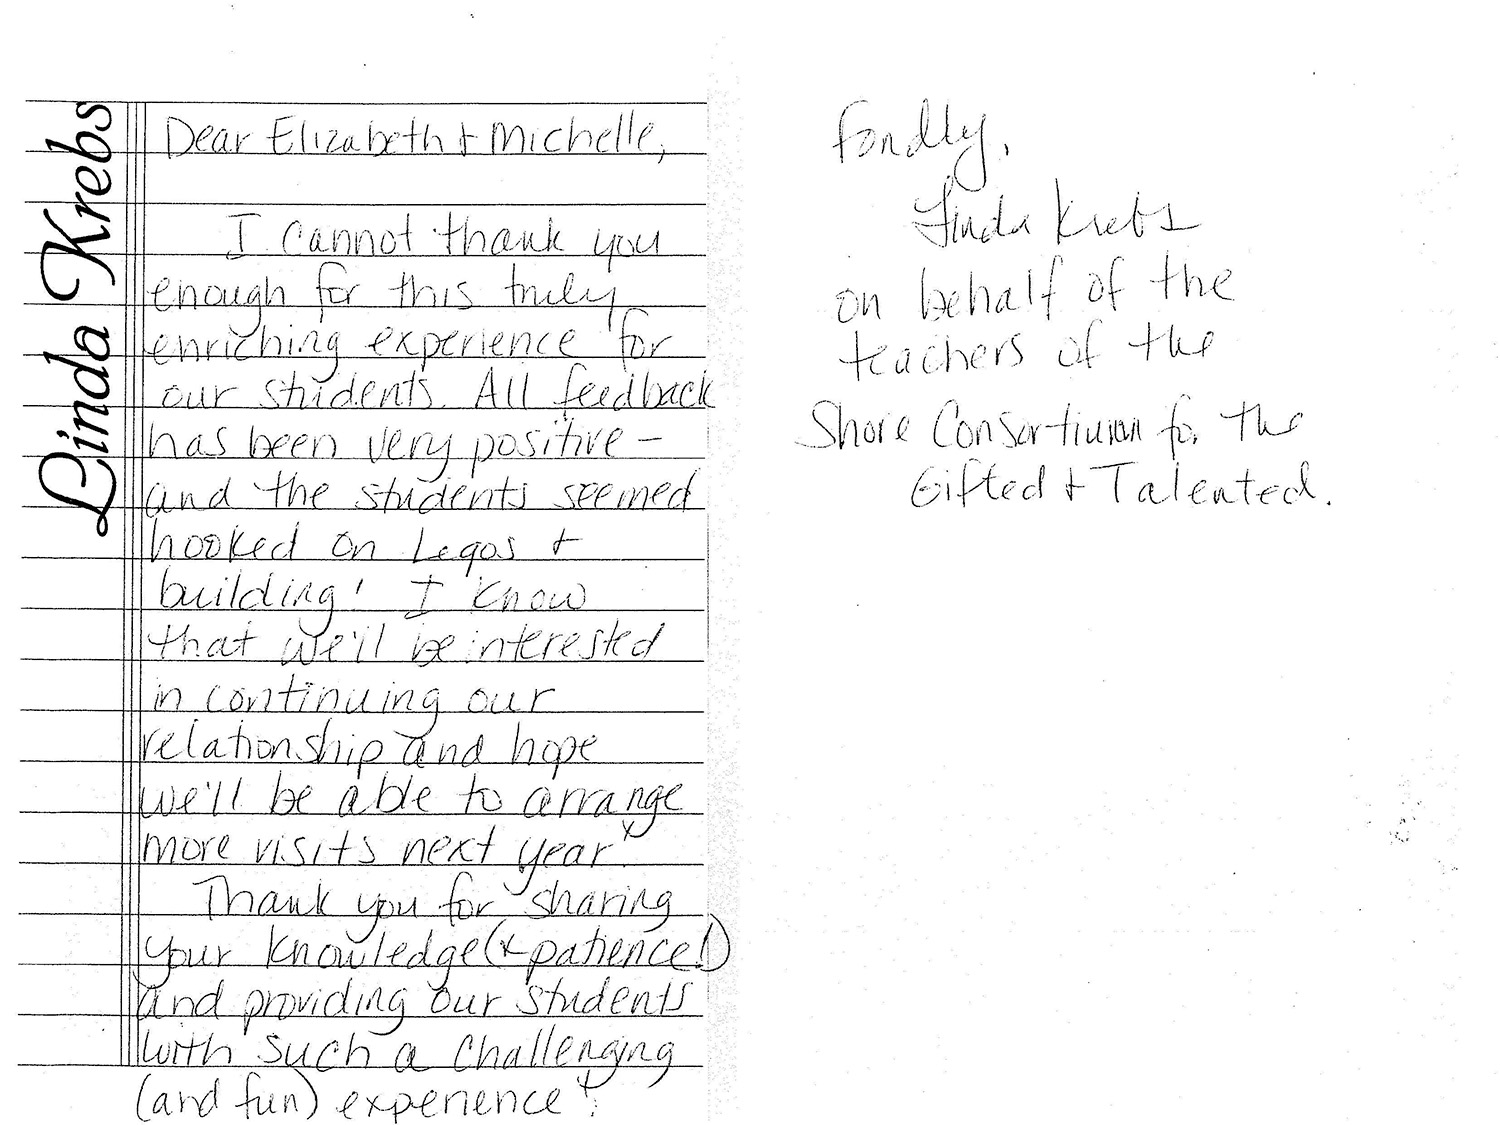 Linda Krebs
Dear Elizabeth + Michelle,
I cannot thank you
enough for this truly
enriching experience for
our students. All feedback
has been very positive -
and the students seemed
hooked on Legos +
building! I know
that we'll be interested
in continuing our
relationship and hope
we'll be able to arrange
more visits next year.
Thank you for sharing
your knowledge (+ patience!)
and providing our students
with such a challenging
(and fun) experience!
Fondly,
Linda Krebs
on behalf of the
teachers of the
Shore Consortium for the
Gifted + Talented.